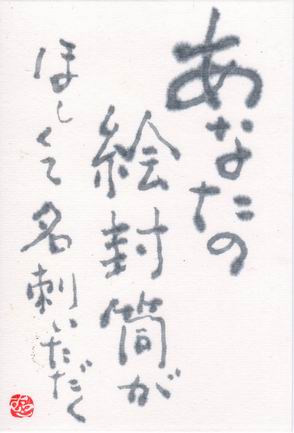 あなたの
絵封筒が
ほしくて名刺いただく